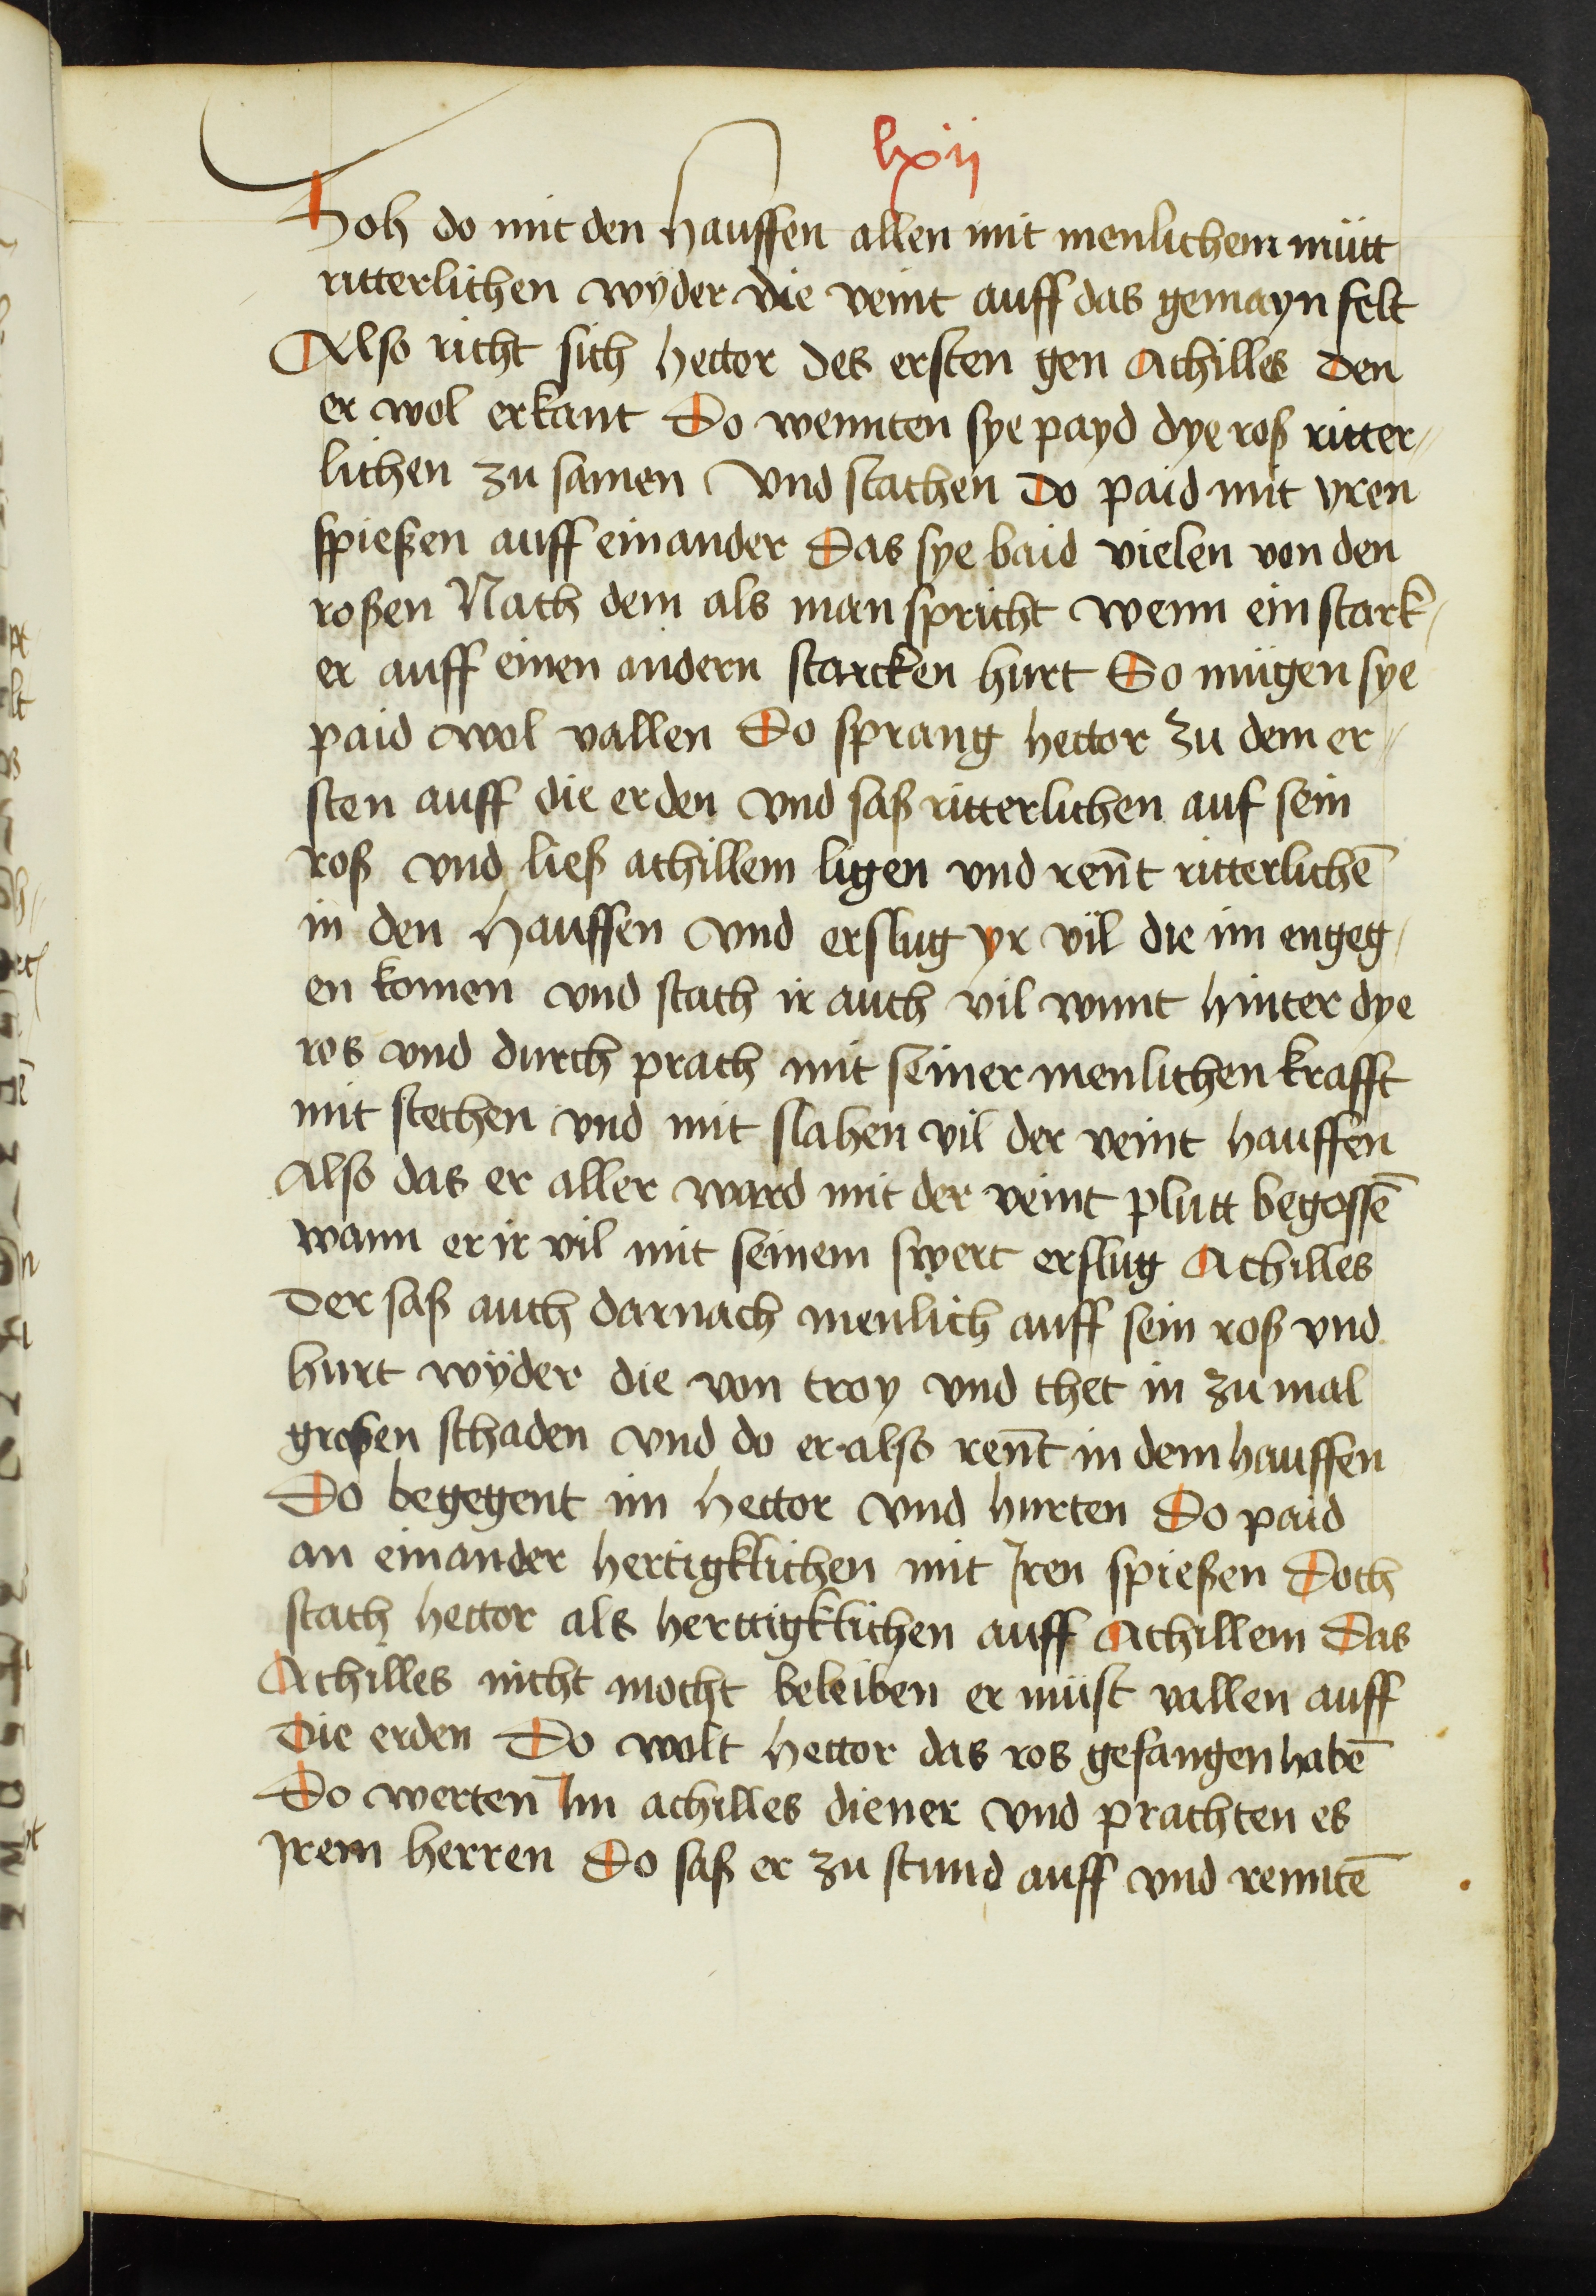 lxij
Hoh do mit den hauffen allen mit menlichem mütt
ritterlichen wyder die veint auff das gemayn felt
Also richt sich hector des ersten gen Achilles Den
er wol erkant Do wennten sye payd dye roß ritter„
lichen zu samen Vnd stachen Do paid mit yren
spießen auff einander Das sye baid vielen von den
roßen Nach dem als man spricht wenn ein stark„
er auff einen andern starcken hurt So mügen sye
paid wol vallen Do sprang hector zu dem er„
sten auff die erden vnd saß ritterlichen auf sein
roß vnd ließ achillem ligen vnd reñt ritterlichē
in den hauffen vnd erslug yr vil die im engeg„
en komen vnd stach ir auch vil wunt hinter dye
ros vnd durch prach mit seiner menlichen krafft
mit stechen vnd mit slahen vil der veint hauffen
Also das er aller ward mit der veint plutt begossē
wann er ir vil mit seinem swert erslug Achilles
Der saß auch darnach menlich auff sein roß vnd
hurt wyder die von troy vnd thet in zu mal
großen schaden vnd do er also reñt in dem hauffen
Do begegent im hector vnd hurten Do paid
an einander hertigklichen mit Jren spießen Doch
stach hector als herttigklichen auff Achillem Das
Achilles nicht mocht beleiben er müst vallen auff
Die erden Do wolt hector das ros gefangen habē
Do werten Im achilles diener vnd prachten es
Jrem herren Do saß er zu stund auff vnd renntē